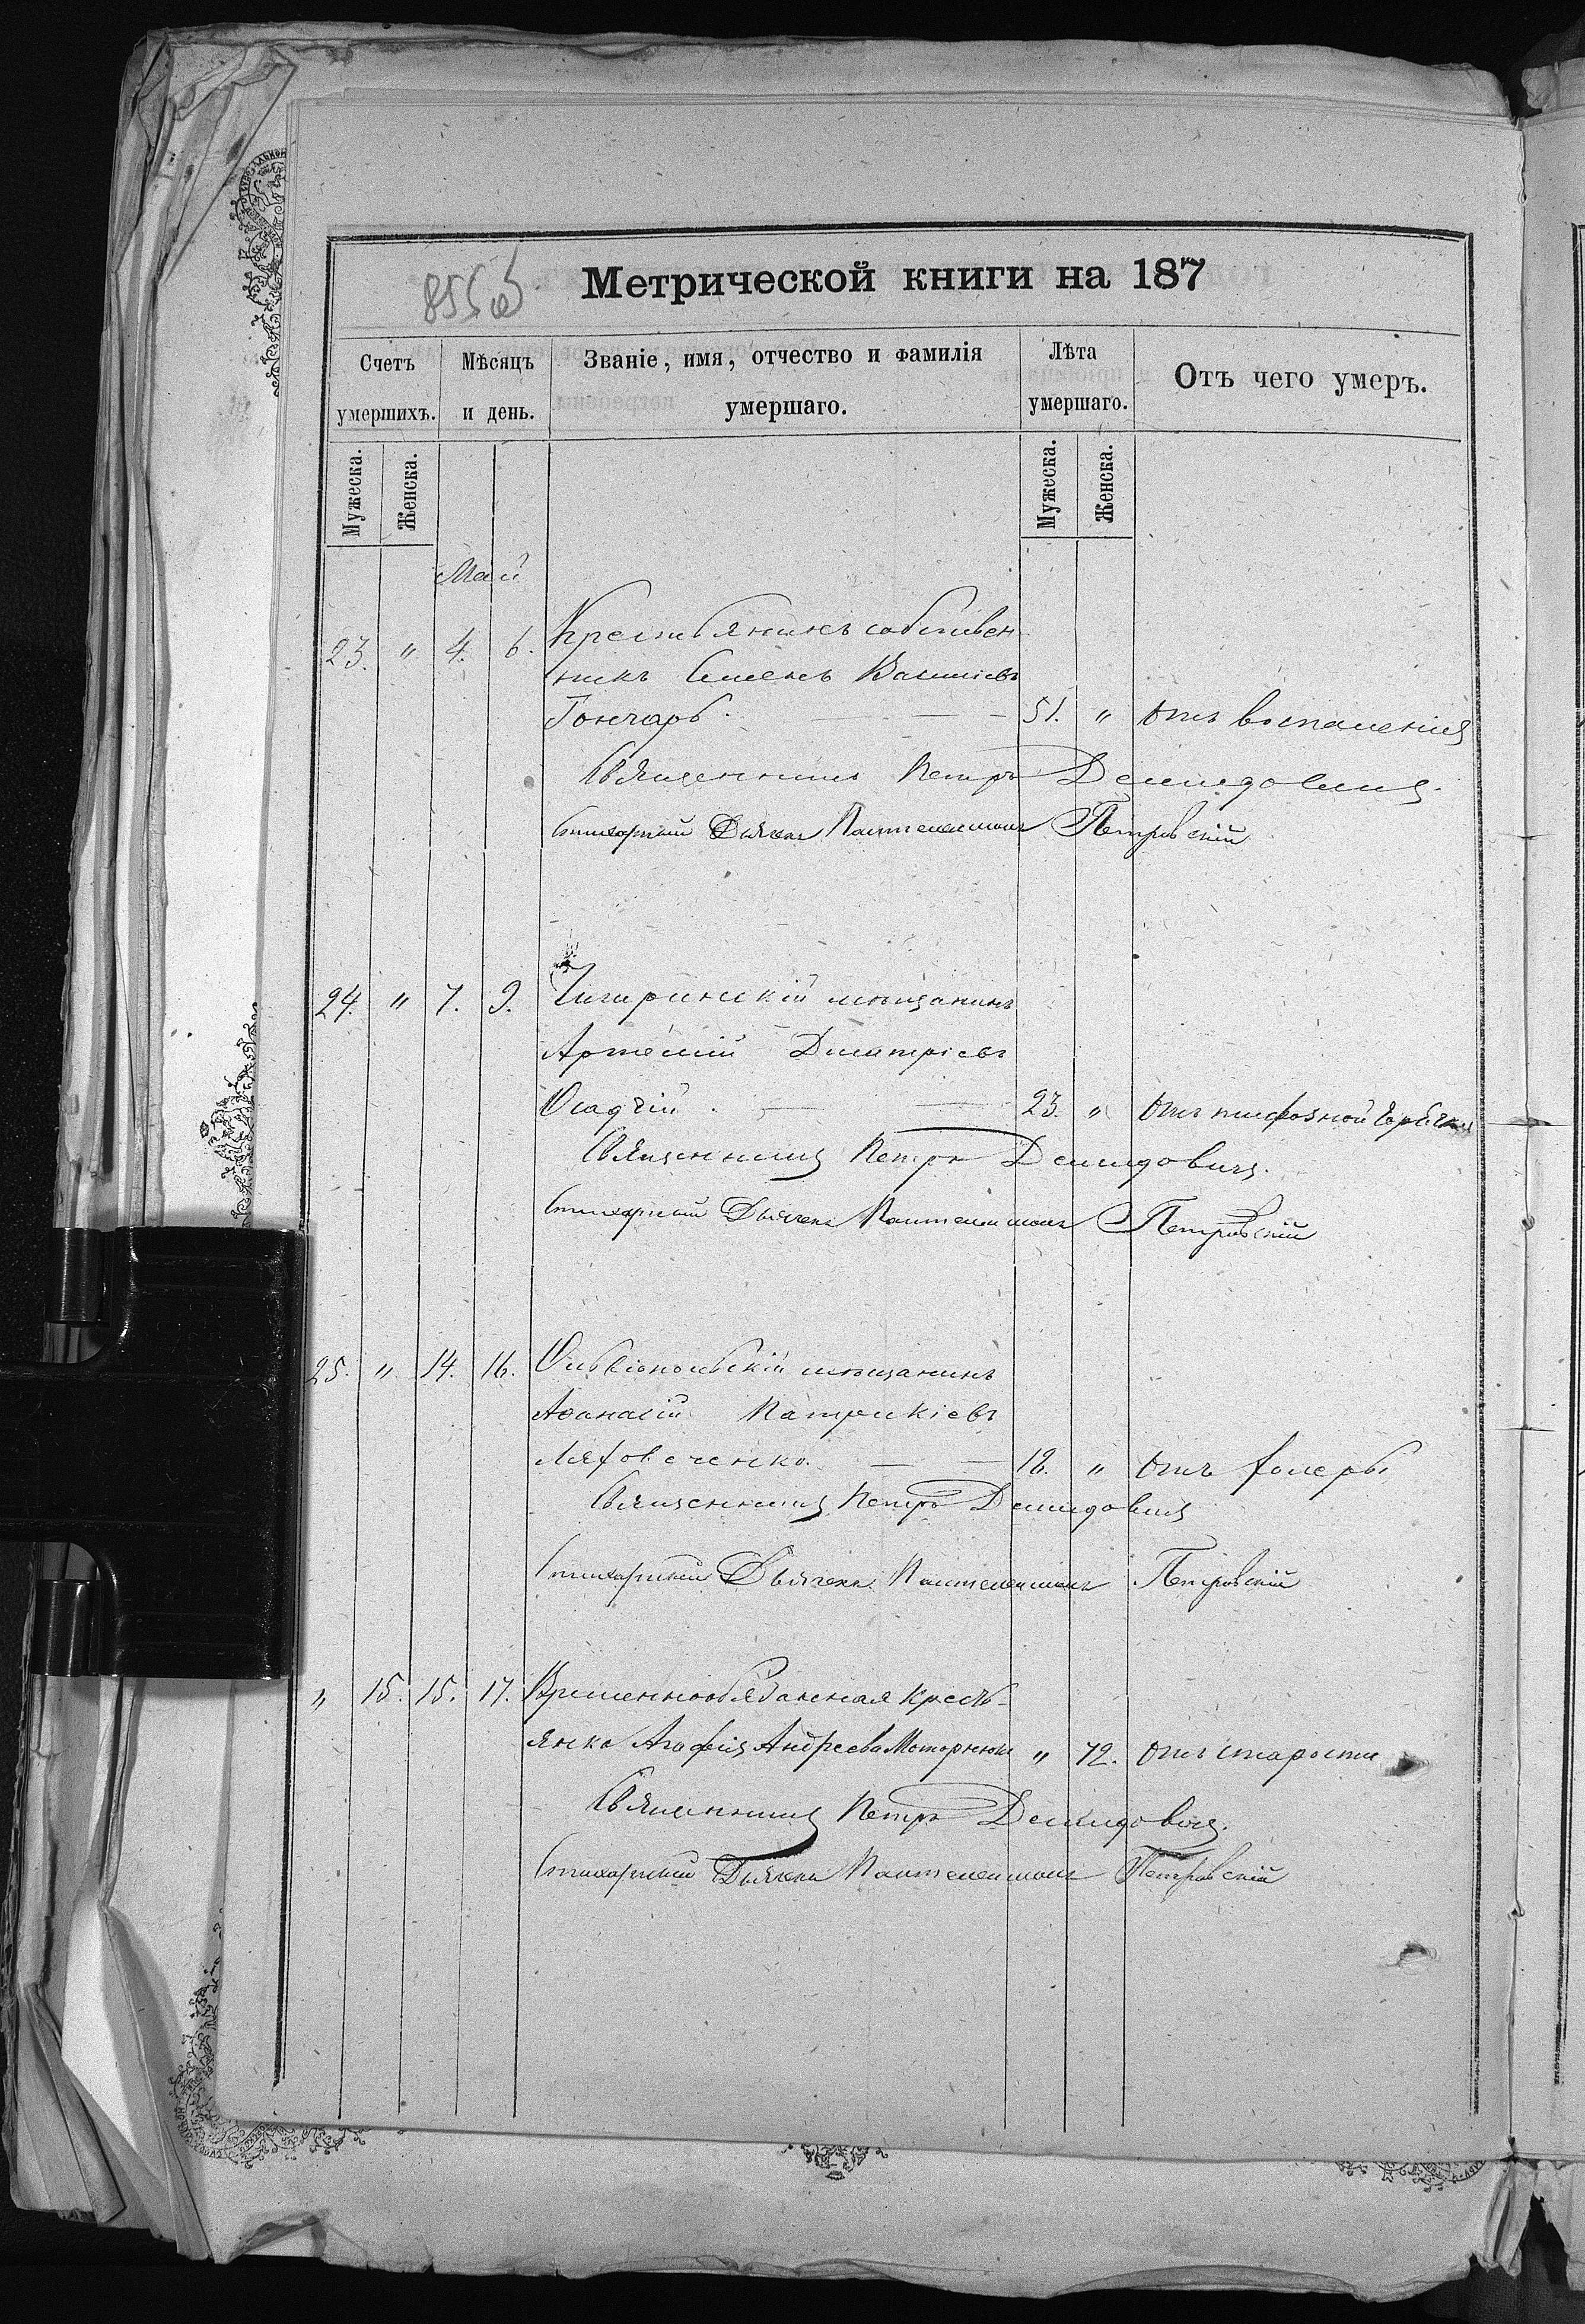 855об
Метрической книги на 187
Счетъ умершихъ.
Мѣсяцъ и день.
Званіе, имя, отчество и фамилія умершаго.
Лѣта умершаго.
Отъ чего умеръ.
Мужеска.
Женска.
Мужеска.
Женска.
Май
23. " 4. 6. Крестьянинъ собствен-
никъ Семенъ
Гончаръ. 51. " отъ воспаленія
Священникъ Петръ Демидовичъ.
Стихарный Дьячекъ Пантелеимонъ Петровскій
24. " 7. 9. Чигиринскій мѣщанинъ
Артемій Дмитріевъ
Осадчій. 23. " отъ тифозной горячки
Священникъ Петръ Демидовичъ.
Стихарный Дьячекъ Пантелеимонъ Петровскій
25. " 14. 16. Ольвіопольскій мѣщанинъ
Аѳанасій Патрикіевъ
18. " отъ холеры
Священникъ Петръ Демидовичъ
Стихарный Дьячекъ Пантелеимонъ Петровскій
" 15. 15. 17. Временнообязанная кресть-
янка Агафія Андреева " 72. отъ старости
Священникъ Петръ Демидовичъ.
Стихарный Дьячекъ Пантелеимонъ Петровскій